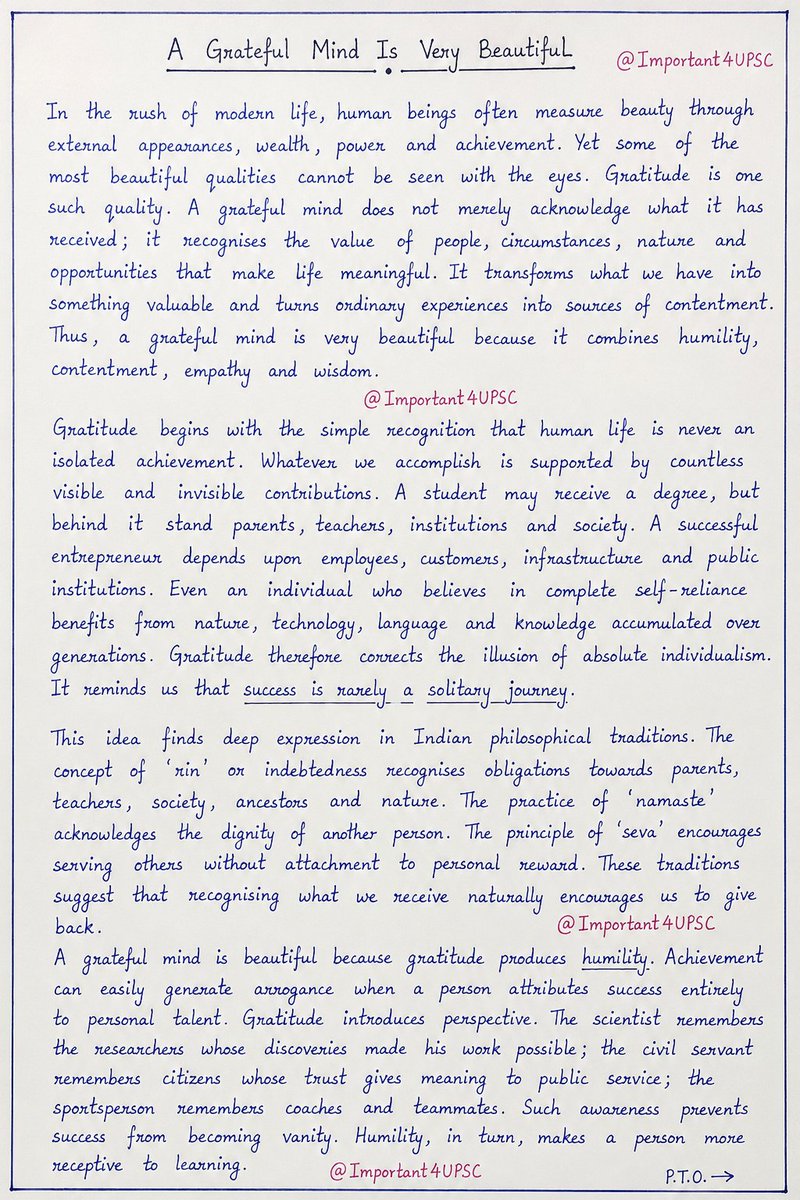 A Grateful Mind Is Very Beautiful
@Important4UPSC
In the rush of modern life, human beings often measure beauty through
external appearances, wealth, power and achievement. Yet some of the
most beautiful qualities cannot be seen with the eyes. Gratitude is one
such quality. A grateful mind does not merely acknowledge what it has
received; it recognises the value of people, circumstances, nature and
opportunities that make life meaningful. It transforms what we have into
something valuable and turns ordinary experiences into sources of contentment.
Thus, a grateful mind is very beautiful because it combines humility,
contentment, empathy and wisdom.
@Important4UPSC
Gratitude begins with the simple recognition that human life is never an
isolated achievement. Whatever we accomplish is supported by countless
visible and invisible contributions. A student may receive a degree, but
behind it stand parents, teachers, institutions and society. A successful
entrepreneur depends upon employees, customers, infrastructure and public
institutions. Even an individual who believes in complete self-reliance
benefits from nature, technology, language and knowledge accumulated over
generations. Gratitude therefore corrects the illusion of absolute individualism.
It reminds us that success is rarely a solitary journey.
This idea finds deep expression in Indian philosophical traditions. The
concept of 'rin' or indebtedness recognises obligations towards parents,
teachers, society, ancestors and nature. The practice of 'namaste'
acknowledges the dignity of another person. The principle of 'seva' encourages
serving others without attachment to personal reward. These traditions
suggest that recognising what we receive naturally encourages us to give
back.
@Important4UPSC
A grateful mind is beautiful because gratitude produces humility. Achievement
can easily generate arrogance when a person attributes success entirely
to personal talent. Gratitude introduces perspective. The scientist remembers
the researchers whose discoveries made his work possible; the civil servant
remembers citizens whose trust gives meaning to public service; the
sportsperson remembers coaches and teammates. Such awareness prevents
success from becoming vanity. Humility, in turn, makes a person more
receptive to learning.
@Important4UPSC
P.T.O. →